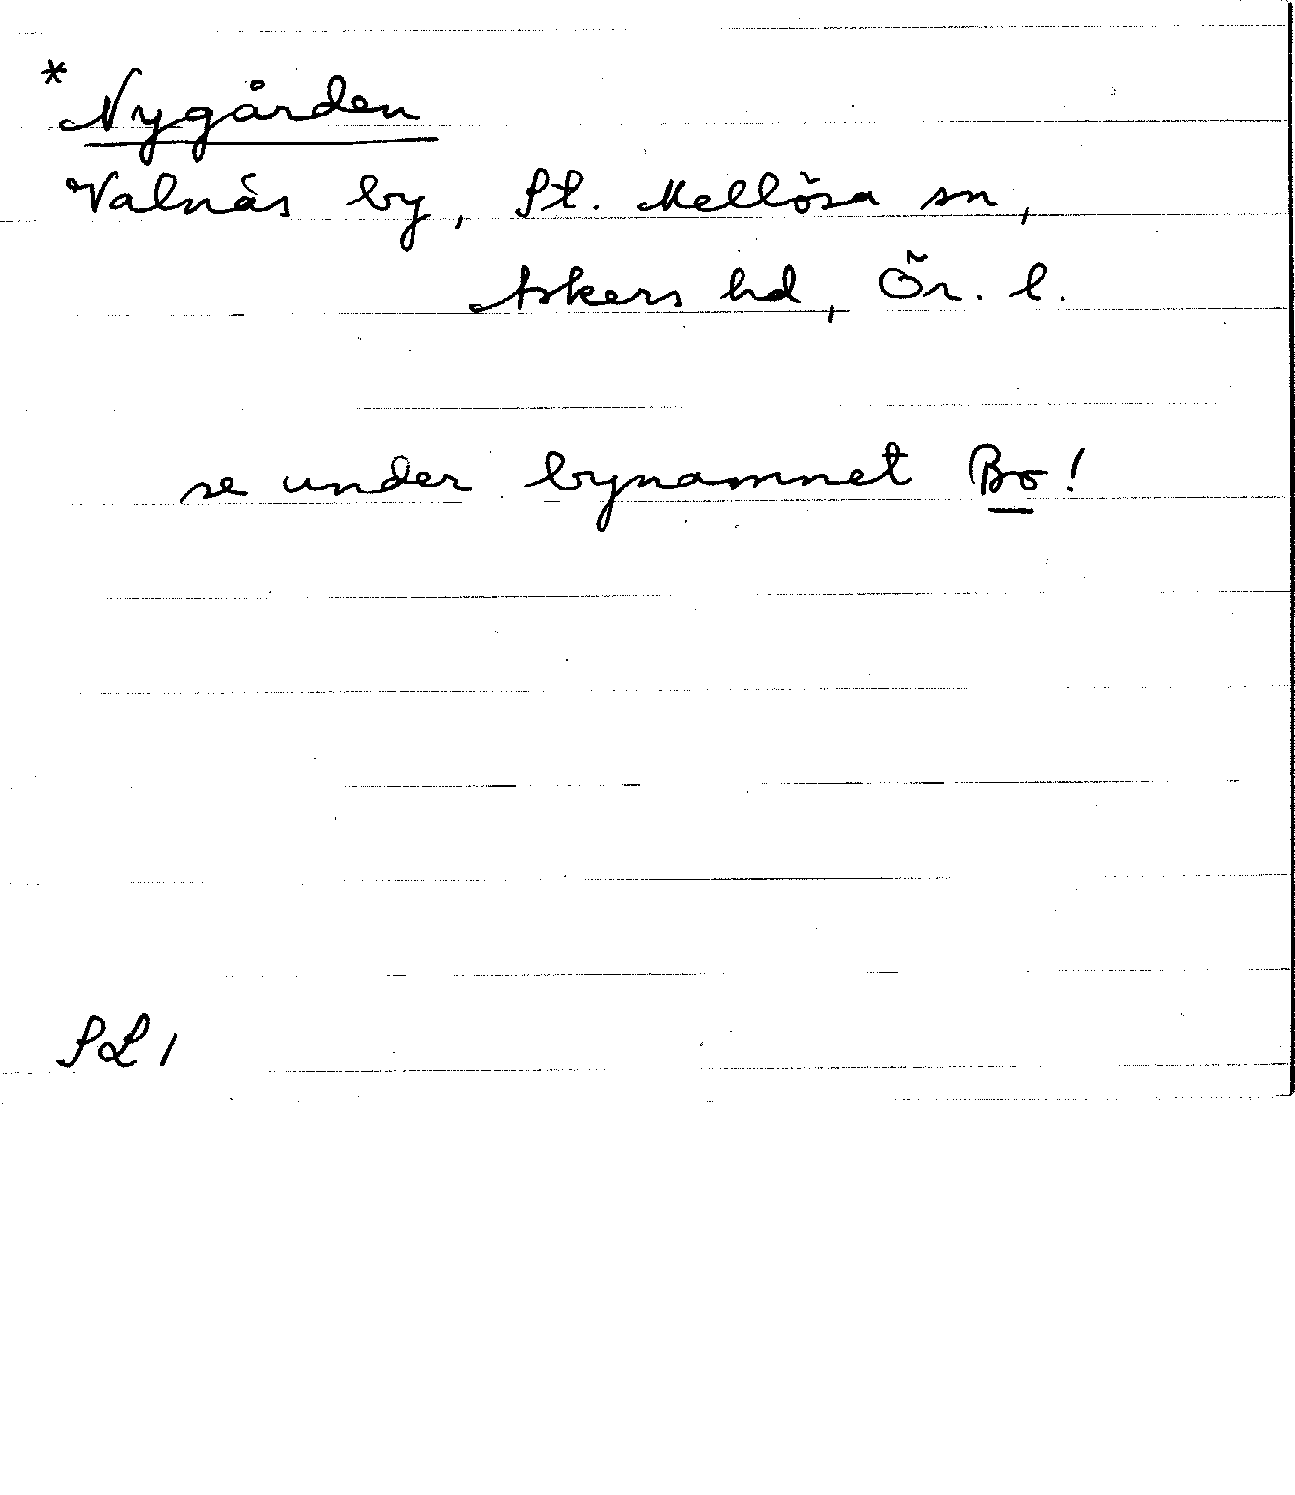 * Nygården
Valnäs by, St. Mellösa sn,
Askers hd, Ör. l.
se under bynamnet Bo!
SL 1